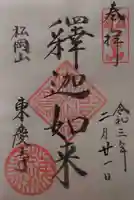 奉拝
令和三年
二月廿一日
釋迦如来
松岡山
東慶寺